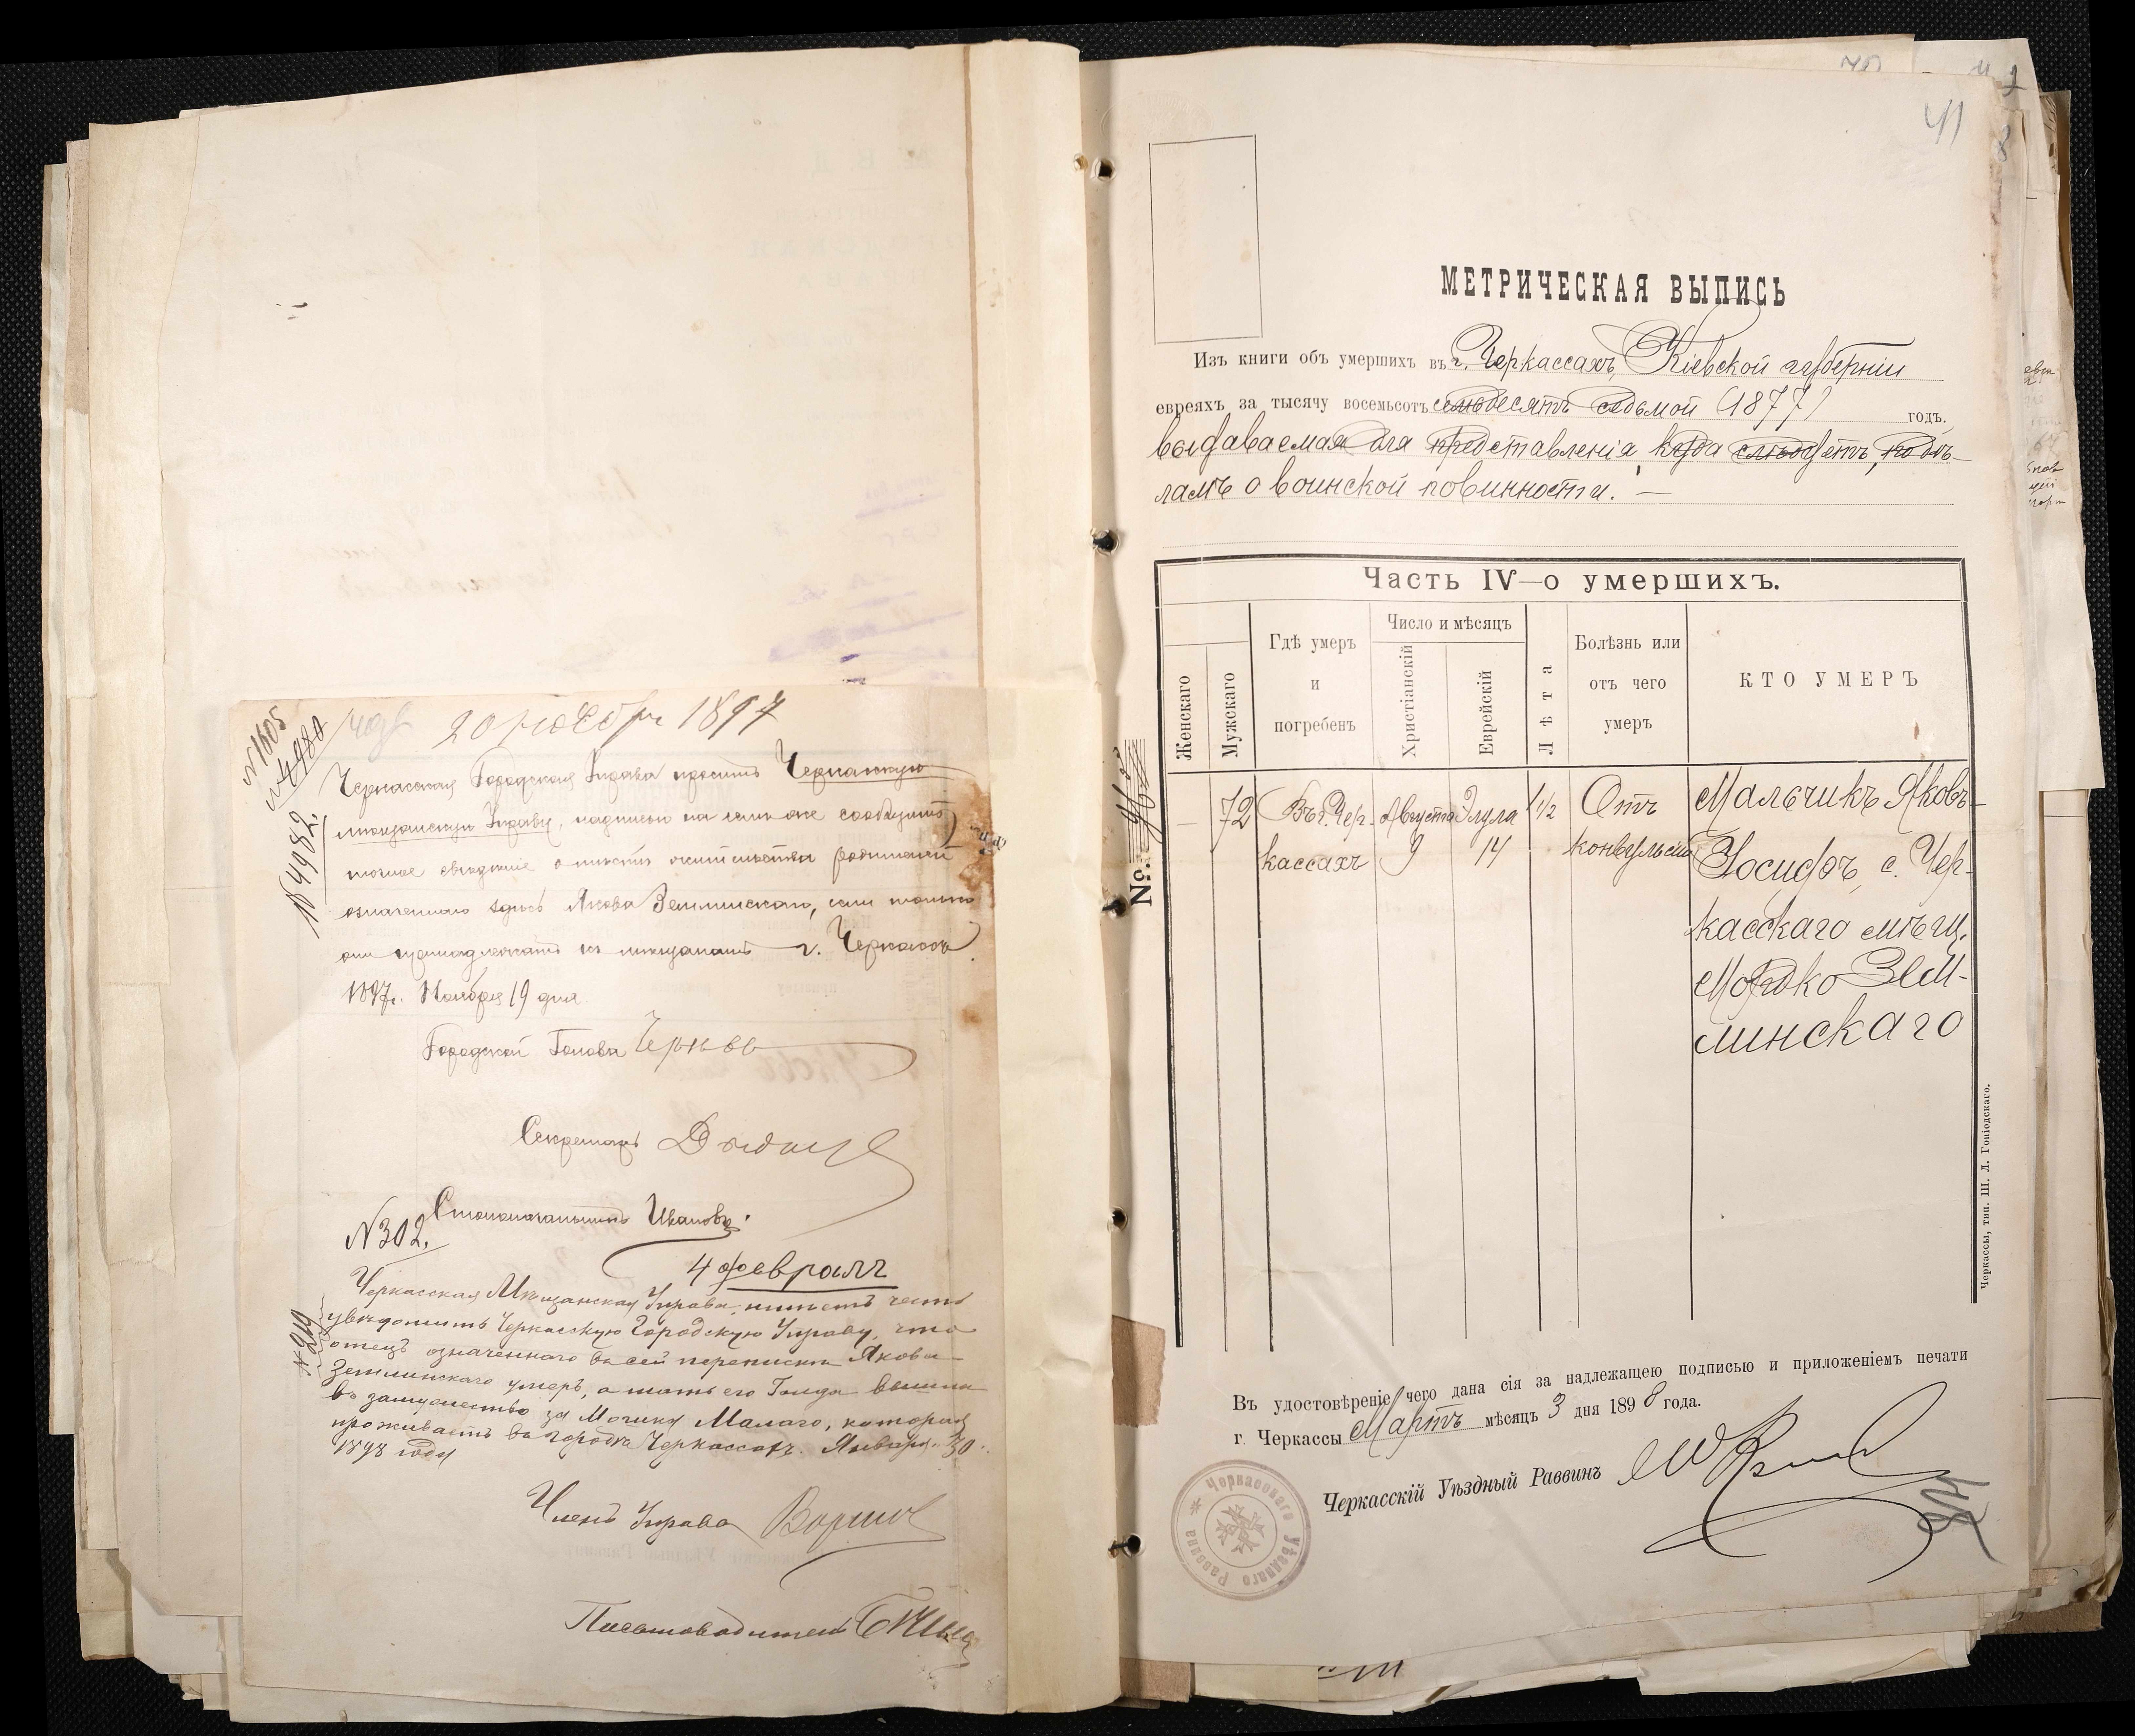 20 Ноября 1897
№ 1605
№ 4980
№ 4982.
Черкасская Городская Управа проситъ Черкасскую
мѣщанскую Управу, надписью на семъ же сообщить
точное свѣдѣніе о мѣстѣ жительства родителей
означеннаго здѣсь Якова Землинскаго, если только
они принадлежатъ къ мѣщанамъ г. Черкассъ.
1897г. Ноября 19 дня
Городской Голова
Секретарь
Столоначальникъ Ивановъ.
№302.
4 февраля
№ 219
Черкасская Мѣщанская Управа имѣетъ честь
увѣдомить Черкасскую Городскую Управу, что
отецъ означеннаго въ сей перепискѣ Якова
Землинскаго умеръ, а мать его Голда вышла
въ замужество за Мочику Малаго, которая
проживаетъ въ городѣ Черкассахъ. Января 30
1898 года
Членъ Управы
Письмоводитель
41
МЕТРИЧЕСКАЯ ВЫПИСЬ
Изъ книги объ умершихъ въ г. Черкассахъ, Кіевской губерніи
евреяхъ за тысячу восемьсотъ семьдесятъ седьмой (1877) годъ.
выдаваемая для представленія, куда слѣдуетъ, по дѣ-
ламъ о воинской повинности. —
Часть IV—о умершихъ.
Женскаго
Мужскаго
Гдѣ умеръ и погребенъ
Число и мѣсяцъ
Христіанскій
Еврейскій
Лѣта
Болѣзнь или отъ чего умеръ
КТО УМЕРЪ
№
— 72 Въ г. Чер- Августа Элула 1½ Отъ Мальчикъ Яковъ-
кассахъ 9 14 конвульсіи Іосифъ, с. Чер-
касскаго мѣщ.
Мордко Зем-
линскаго
Черкассы, тип. Ш. Л. Гоніодскаго.
Въ удостовѣреніе чего дана сія за надлежащею подписью и приложеніемъ печати
г. Черкассы Мартъ мѣсяцъ 3 дня 1898 года.
Черкасскій Уѣздный Раввинъ
Черкасскаго Уѣзднаго Раввина